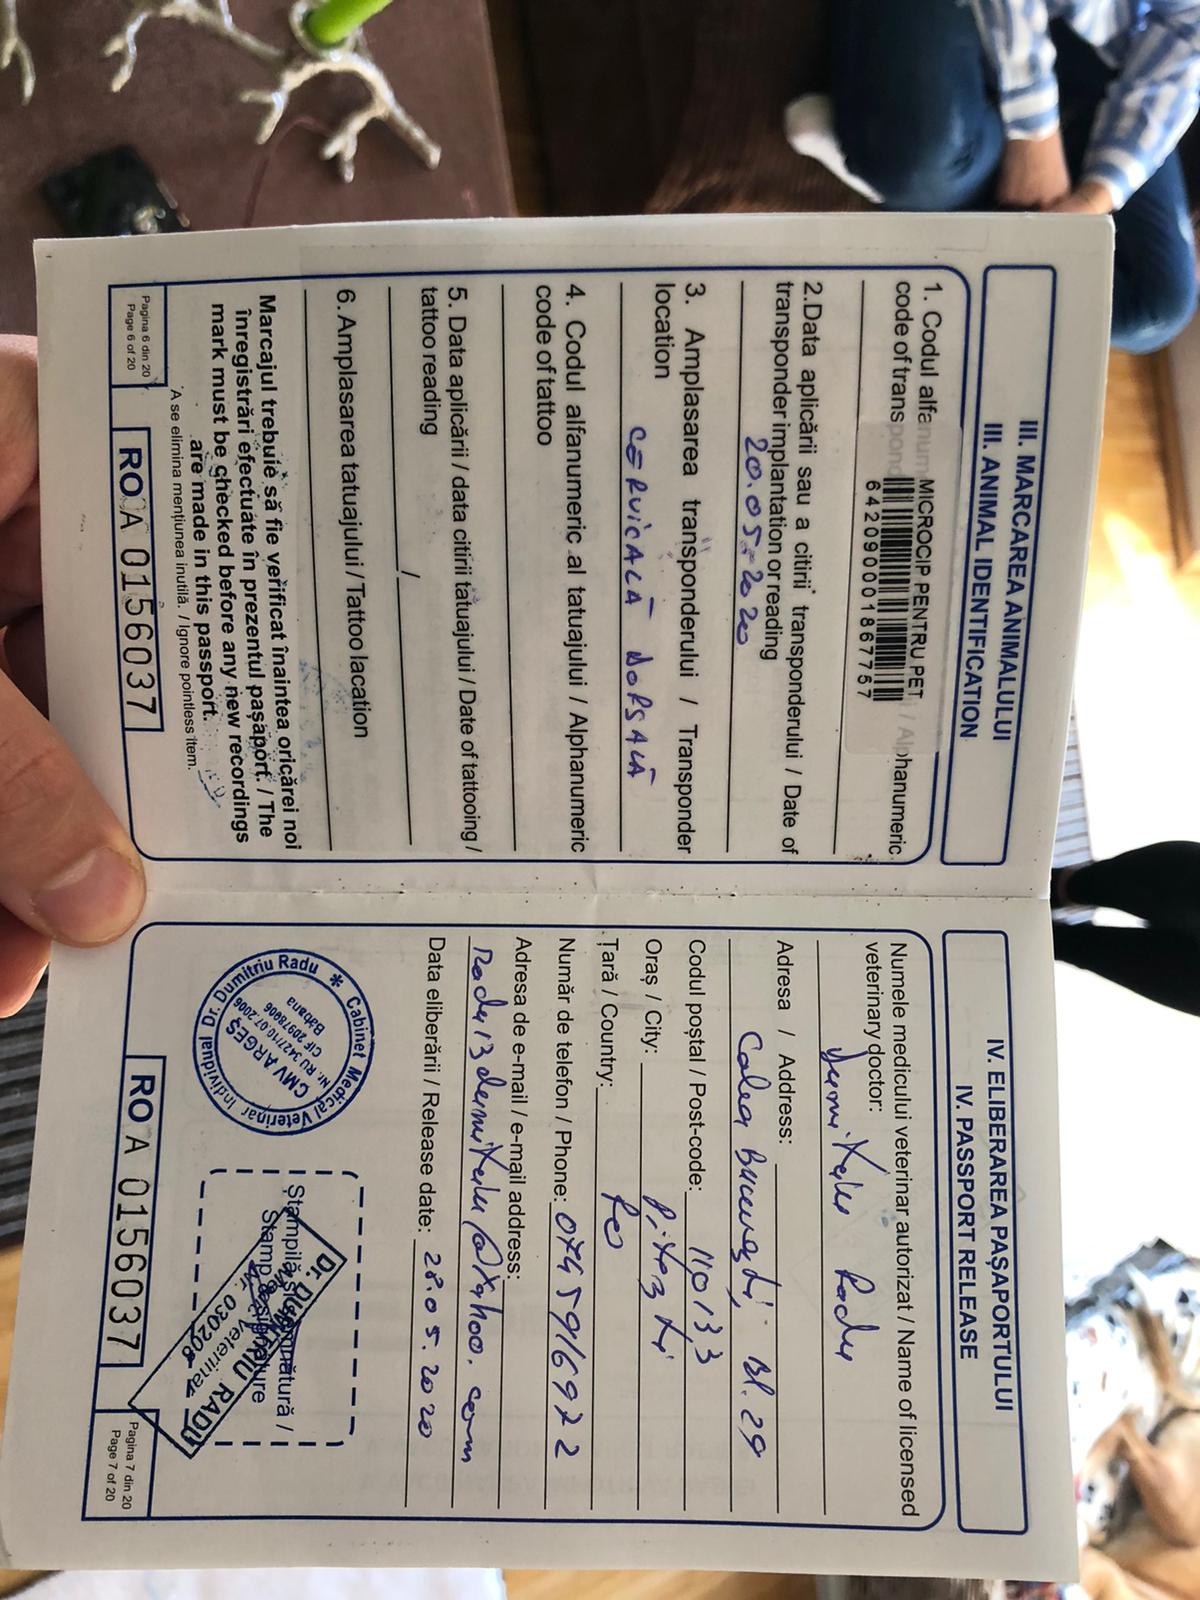 III. MARCAREA ANIMALULUI
III. ANIMAL IDENTIFICATION
1. Codul alfanum / Alphanumeric
code of transpond
MICROCIP PENTRU PET
642090001867757
2.Data aplicării sau a citirii transponderului / Date of
transponder implantation or reading
20.05.2020
3. Amplasarea transponderului / Transponder
location
CERVICALĂ DORSALĂ
4. Codul alfanumeric al tatuajului / Alphanumeric
code of tattoo
5. Data aplicării / data citirii tatuajului / Date of tattooing /
tattoo reading
/
6. Amplasarea tatuajului / Tattoo lacation
Marcajul trebuie să fie verificat înaintea oricărei noi
înregistrări efectuate în prezentul paşaport. / The
mark must be checked before any new recordings
are made in this passport.
*A se elimina menţiunea inutilă. / Ignore pointless item.
Pagina 6 din 20
Page 6 of 20
RO A 0156037
IV. ELIBERAREA PAŞAPORTULUI
IV. PASSPORT RELEASE
Numele medicului veterinar autorizat / Name of licensed
veterinary doctor:
Dumitriu Radu
Adresa / Address:
Calea Bucureşti, Bl. 29
Codul poştal / Post-code: 110133
Oraş / City: Piteşti
Ţară / Country: Ro
Număr de telefon / Phone: 0745916922
Adresa de e-mail / e-mail address:
radu13dumitriu@yahoo.com
Data eliberării / Release date: 28.05.2020
* Cabinet Medical Veterinar Individual Dr. Dumitriu Radu
CMV ARGEŞ
Nr. RU 3427/10.07.2006
CIF 20978906
Băbana
Ştampilă şi semnătură /
Stamp & signature
Dr. DUMITRIU RADU
Medic Veterinar
Nr. 030208
RO A 0156037
Pagina 7 din 20
Page 7 of 20